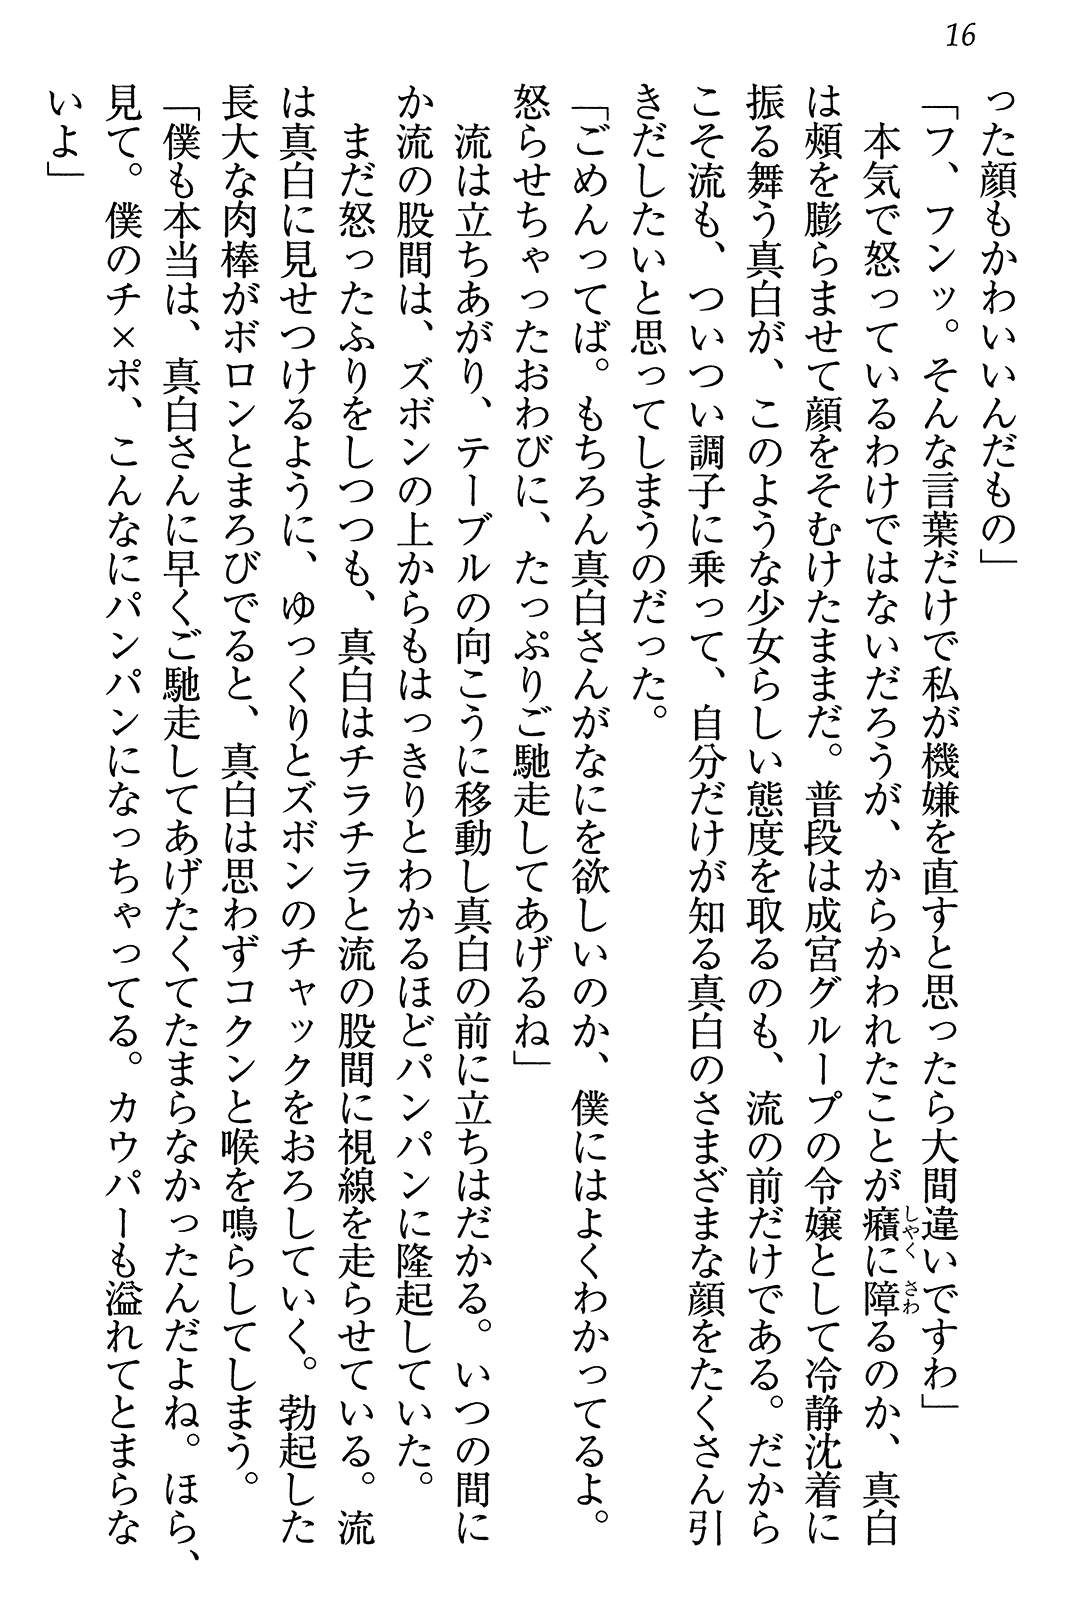 16
った顔もかわいいんだもの」
「フ、フンッ。そんな言葉だけで私が機嫌を直すと思ったら大間違いですわ」
本気で怒っているわけではないだろうが、からかわれたことが癪に障るのか、真白
しゃく さわ
は頰を膨らませて顔をそむけたままだ。普段は成宮グループの令嬢として冷静沈着に
振る舞う真白が、このような少女らしい態度を取るのも、流の前だけである。だから
こそ流も、ついつい調子に乗って、自分だけが知る真白のさまざまな顔をたくさん引
きだしたいと思ってしまうのだった。
「ごめんってば。もちろん真白さんがなにを欲しいのか、僕にはよくわかってるよ。
怒らせちゃったおわびに、たっぷりご馳走してあげるね」
流は立ちあがり、テーブルの向こうに移動し真白の前に立ちはだかる。いつの間に
か流の股間は、ズボンの上からもはっきりとわかるほどパンパンに隆起していた。
まだ怒ったふりをしつつも、真白はチラチラと流の股間に視線を走らせている。流
は真白に見せつけるように、ゆっくりとズボンのチャックをおろしていく。勃起した
長大な肉棒がボロンとまろびでると、真白は思わずコクンと喉を鳴らしてしまう。
「僕も本当は、真白さんに早くご馳走してあげたくてたまらなかったんだよね。ほら、
見て。僕のチ×ポ、こんなにパンパンになっちゃってる。カウパーも溢れてとまらな
いよ」